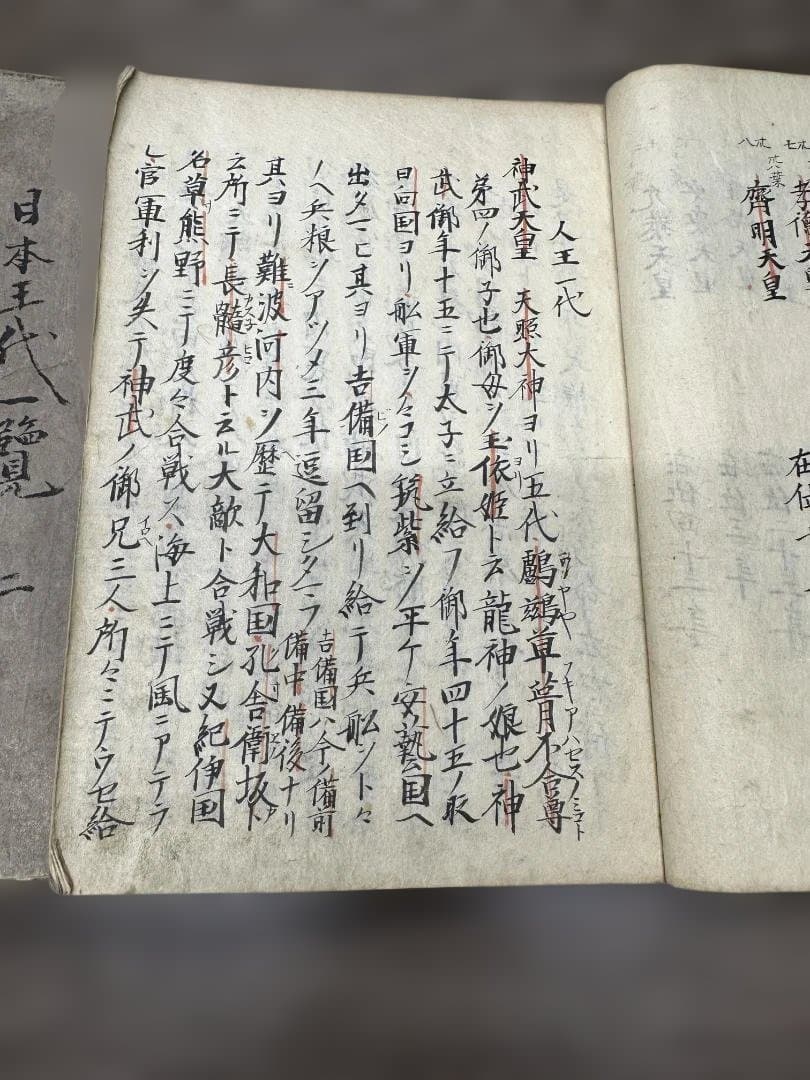 八丁
七丁
六葉
孝德天皇
齊明天皇
在位
人王一代
神武天皇 天照大神ヨリ五代鸕鷀草葺不合尊
ウヤ フキアハセスノミコト
第四ノ御子也御母ヲ玉依姫ト云龍神ノ娘也神
ヨリ
武御年十五ニテ太子ニ立給フ御年四十五ノ取
日向国ヨリ舩軍ヲヲコシ筑紫ヲ平ケ安藝国ヘ
出タマヒ其ヨリ吉備国ヘ到リ給テ兵舩ヲトヽ
ビノ
ノヘ兵粮ヲアツメ三年逗留シタマフ 吉備国ハ今ノ備前
備中備後ナリ
其ヨリ難波河内ヲ歴テ大和国孔舎衛坂ト
云所ニテ長髄彦ト云ル大敵ト合戦シ又紀伊国
スネ ヒコ
名草熊野ニテ度々合戦ス海上ニテ風ニアテラ
レ官軍利ヲ失テ神武ノ御兄三人所々ニテウセ給
日本王代一覧 二